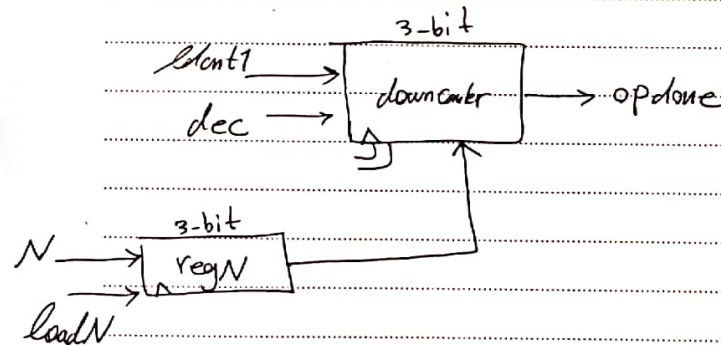 3-bit
ldcnt1
downcounter
opdone
dec
3-bit
N
regN
loadN